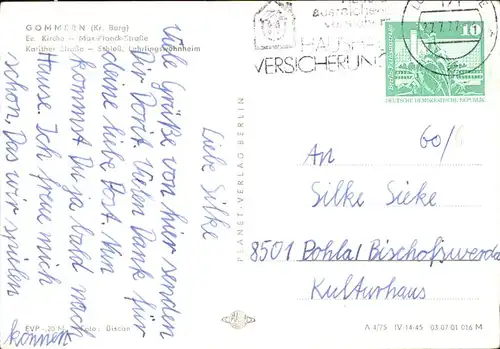 GOMMERN (Kr. Burg)
Ev. Kirche — Max-Planck-Straße
Karither Straße — Schloß, Lehrlingswohnheim
Liebe Silke
Viele Grüße von hier senden
Dir Dorit. Vielen Dank für
deine liebe Post. Nun
kommst Du ja bald nach
Hause. Ich freue mich
schon, Das wir spielen
können
EVP -,20 M Foto: Biscan
PLANET-VERLAG BERLIN
ausreichend
versichert
HAUSRAT
VERSICHERUNG
10
DEUTSCHE DEMOKRATISCHE REPUBLIK
60/6
An
Silke Sieke
8501 Pohla/Bischofswerda
Kulturhaus
A 4/75 IV-14-45 03 07 01 016 M